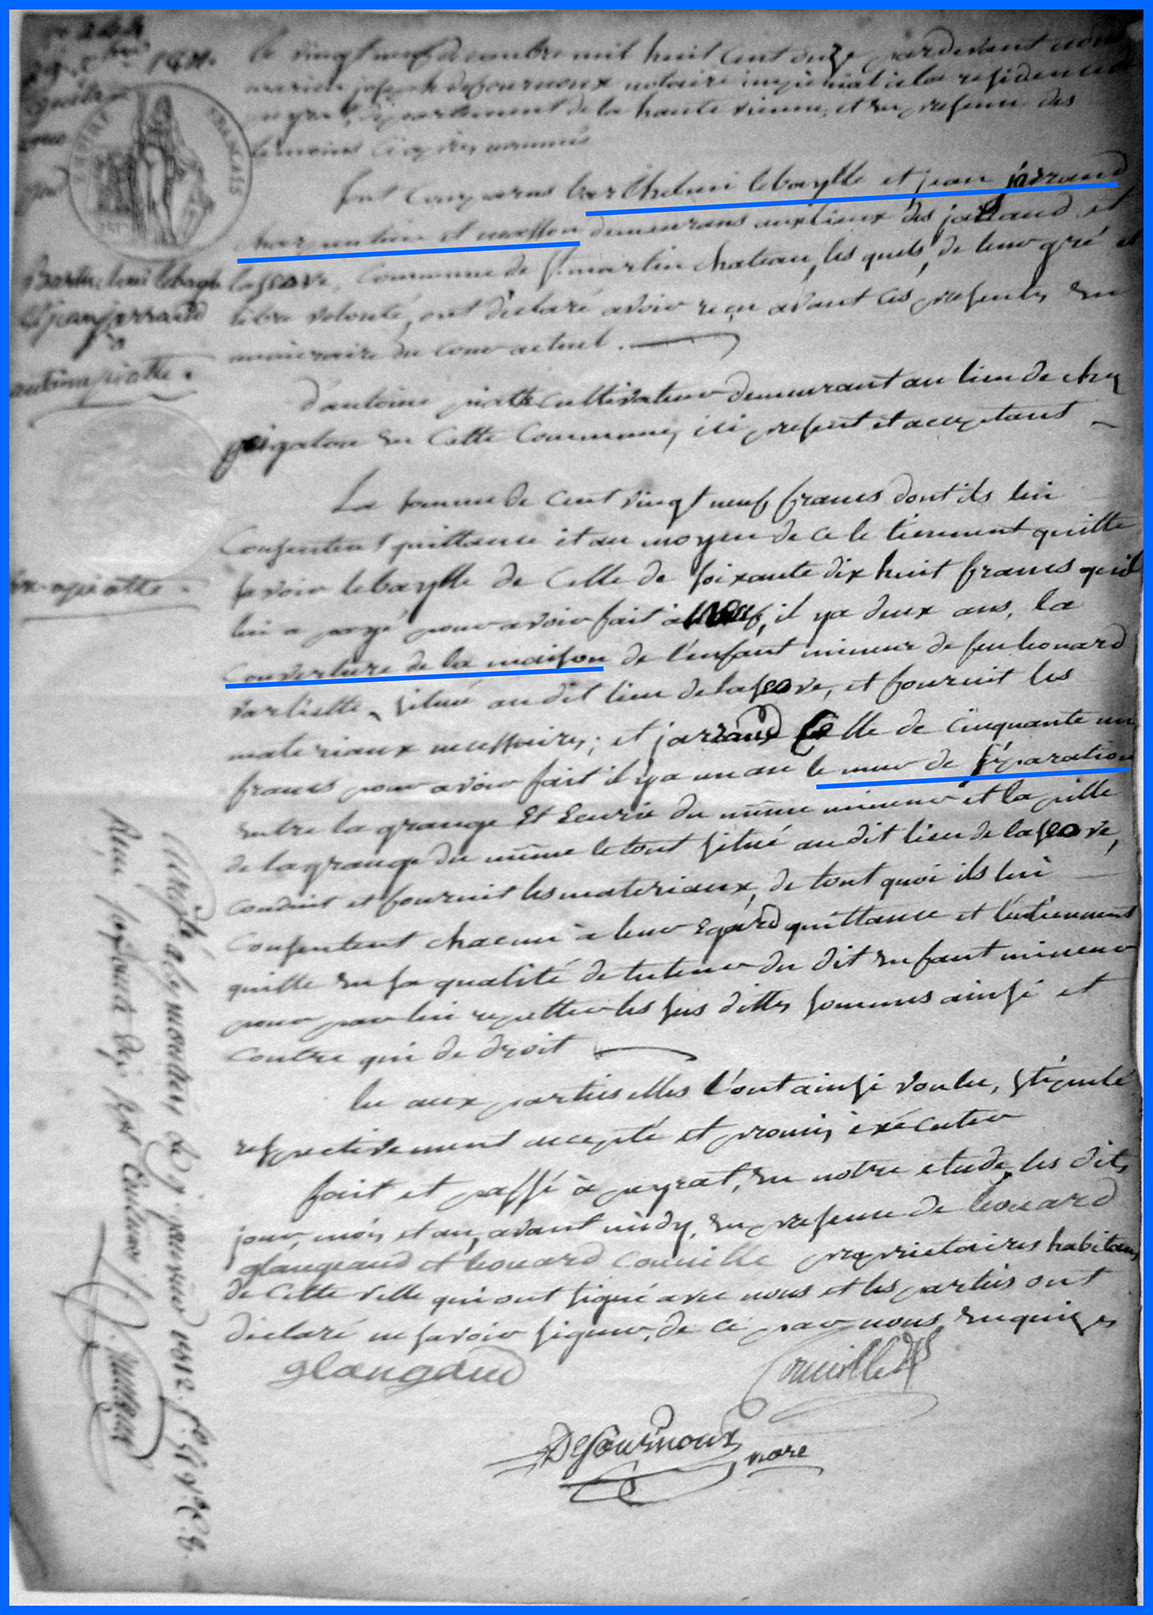 le vingt neuf decembre mil huit cent onze pardevant nous
marien joseph desfournoux notaire imperial à la residence de
peyrat, departement de la haute vienne, et en presence des
temoins cy après nommés
EMPIRE FRANÇAIS
sont comparus barthelemi lebaylle et jean jarraud
charpentier et masson demeurans aux lieux des jarraud et
lafeove, commune de st. martin chateau, les quels, de leur gré et
libre volonté, ont déclaré avoir reçu avant ces presentes en
numeraire du cour actuel.
Barthelemi lebaylle
et jean jarraud
à
antoine piatte.
d'antoine piatte cultivateur demeurant au lieu de chez
en cette commune, ici present et acceptant
La somme de cent vingt neuf francs dont ils lui
Consentent quittance et au moyen de ce le tiennent quitte
savoir lebaylle de celle de soixante dix huit francs qu'il
lui a payé pour avoir fait à neuf, il ya deux ans, la
couverture de la maison de l'enfant mineur de feu leonard
varliette, situé au dit lieu de lafeove, et fournit les
materiaux necessaires; et jarraud Celle de cinquante un
francs pour avoir fait il ya un an le mur de séparation
entre la grange Et Ecurie du même mineur et la
de la grange du même le tout situé au dit lieu de lafeove,
conduit et fournit les materiaux, de tout quoi ils lui
Consentent chacun à leur Egard quittance et l'entiennent
quitte en sa qualité de tuteur du dit enfant mineur
pour par lui repetter les sus dittes sommes ainsi et
contre qui de droit
lu aux parties elles l'ont ainsi voulu, stipulé
respectivement accepté et promis exécuter
fait et passé à peyrat, en notre etude, les dits
jour, mois et an, avant midy, en presence de leonard
glangeaud et leonard Couville proprietaires habitans
de cette ville qui ont signé avec nous et les parties ont
déclaré ne savoir signer, de ce par nous enquises
glangeaud
Couville
Desfournoux
nore